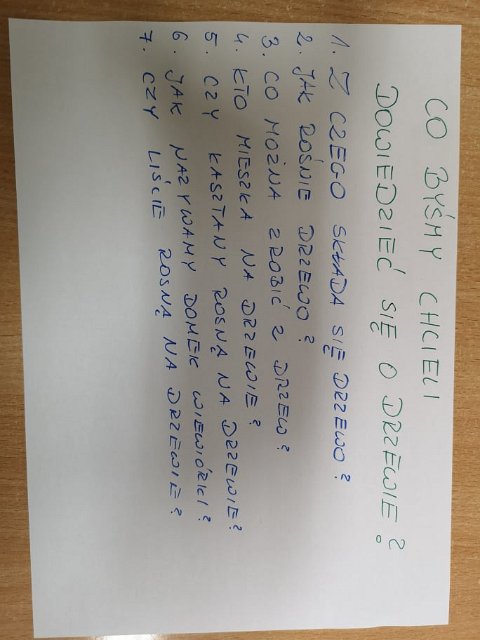 CO BYŚMY CHCIELI
DOWIEDZIEĆ SIĘ O DRZEWIE?
1. Z CZEGO SKŁADA SIĘ DRZEWO?
2. JAK ROŚNIE DRZEWO?
3. CO MOŻNA ZROBIĆ Z DRZEW?
4. KTO MIESZKA NA DRZEWIE?
5. CZY KASZTANY ROSNĄ NA DRZEWIE?
6. JAK NAZYWAMY DOMEK WIEWIÓRKI?
7. CZY LIŚCIE ROSNĄ NA DRZEWIE?